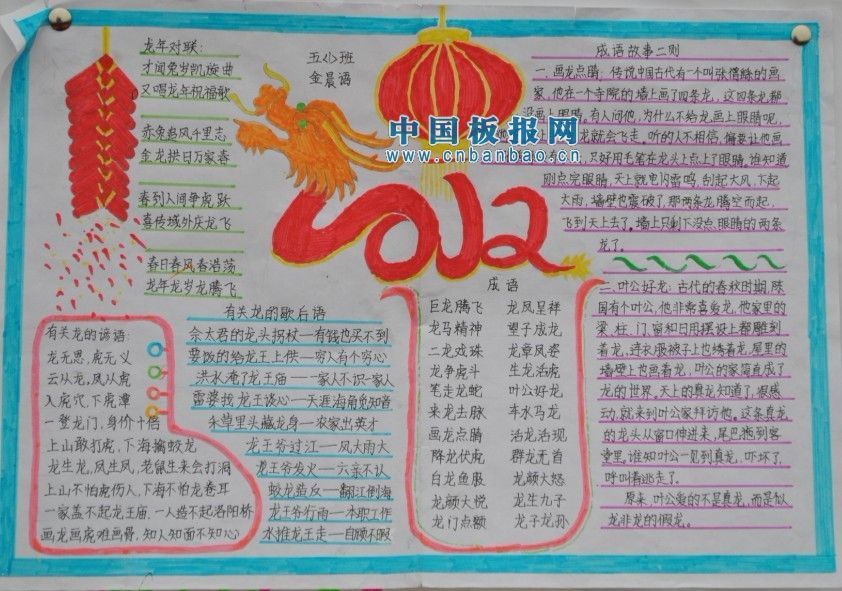 龙年对联:
才闻兔岁凯旋曲
又唱龙年祝福歌
赤兔追风千里志
金龙拱日万家春
春到人间争虎跃
喜传域外庆龙飞
春日春风春浩荡
龙年龙岁龙腾飞
五(2)班
金晨语
2012
中国板报网
www.cnbanbao.cn
成语故事二则
一.画龙点睛: 传说中国古代有一个叫张僧繇的画
家,他在一个寺院的墙上画了四条龙,这四条龙都
没画上眼睛,有人问他,为什么不给龙画上眼睛呢,
龙就会飞走。听的人不相信,偏要让他画
只好用毛笔在龙头上点上了眼睛。谁知道
刚点完眼睛,天上就电闪雷鸣,刮起大风,下起
大雨,墙壁也震破了,那两条龙腾空而起,
飞到天上去了。墙上只剩下没点眼睛的两条
龙了。
二.叶公好龙: 古代的春秋时期,陈
国有个叶公,他非常喜爱龙,他家里的
梁、柱、门、窗和日用摆设上都雕刻
着龙,连衣服被子上也绣着龙,屋里的
墙壁上也画着龙,叶公的家简直成了
龙的世界。天上的真龙知道了,很感
动,就来到叶公家拜访他。这条真龙
的龙头从窗口伸进来,尾巴拖到客
堂里。谁知叶公一见到真龙,吓坏了,
呼叫着逃走了。
原来,叶公爱的不是真龙,而是似
龙非龙的假龙。
有关龙的谚语:
龙无恩,虎无义
云从龙,风从虎
入虎穴,下虎潭
一登龙门,身价十倍
上山敢打虎,下海擒蛟龙
龙生龙,凤生凤,老鼠生来会打洞
上山不怕虎伤人,下海不怕龙卷耳
一家盖不起龙王庙,一人造不起洛阳桥
画龙画虎难画骨,知人知面不知心
有关龙的歇后语
佘太君的龙头拐杖—有钱也买不到
要饭的给龙王上供—穷人有个穷心
洪水淹了龙王庙—一家人不识一家人
雷婆找龙王谈心—天涯海角觅知音
朱草里头藏龙身—农家出英才
龙王爷过江—风大雨大
龙王爷发火—六亲不认
蛟龙造反—翻江倒海
龙王爷行雨—本职工作
水推龙王走—自顾不暇
成语
巨龙腾飞 龙凤呈祥
龙马精神 望子成龙
二龙戏珠 龙章凤姿
龙争虎斗 生龙活虎
笔走龙蛇 叶公好龙
来龙去脉 车水马龙
画龙点睛 活龙活现
降龙伏虎 群龙无首
白龙鱼服 龙颜大怒
龙颜大悦 龙生九子
龙门点额 龙子龙孙